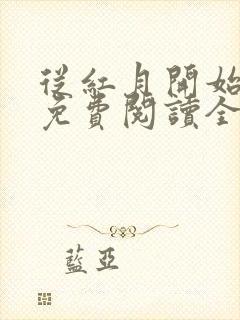 從紅月開始
免費閱讀全
藍亞